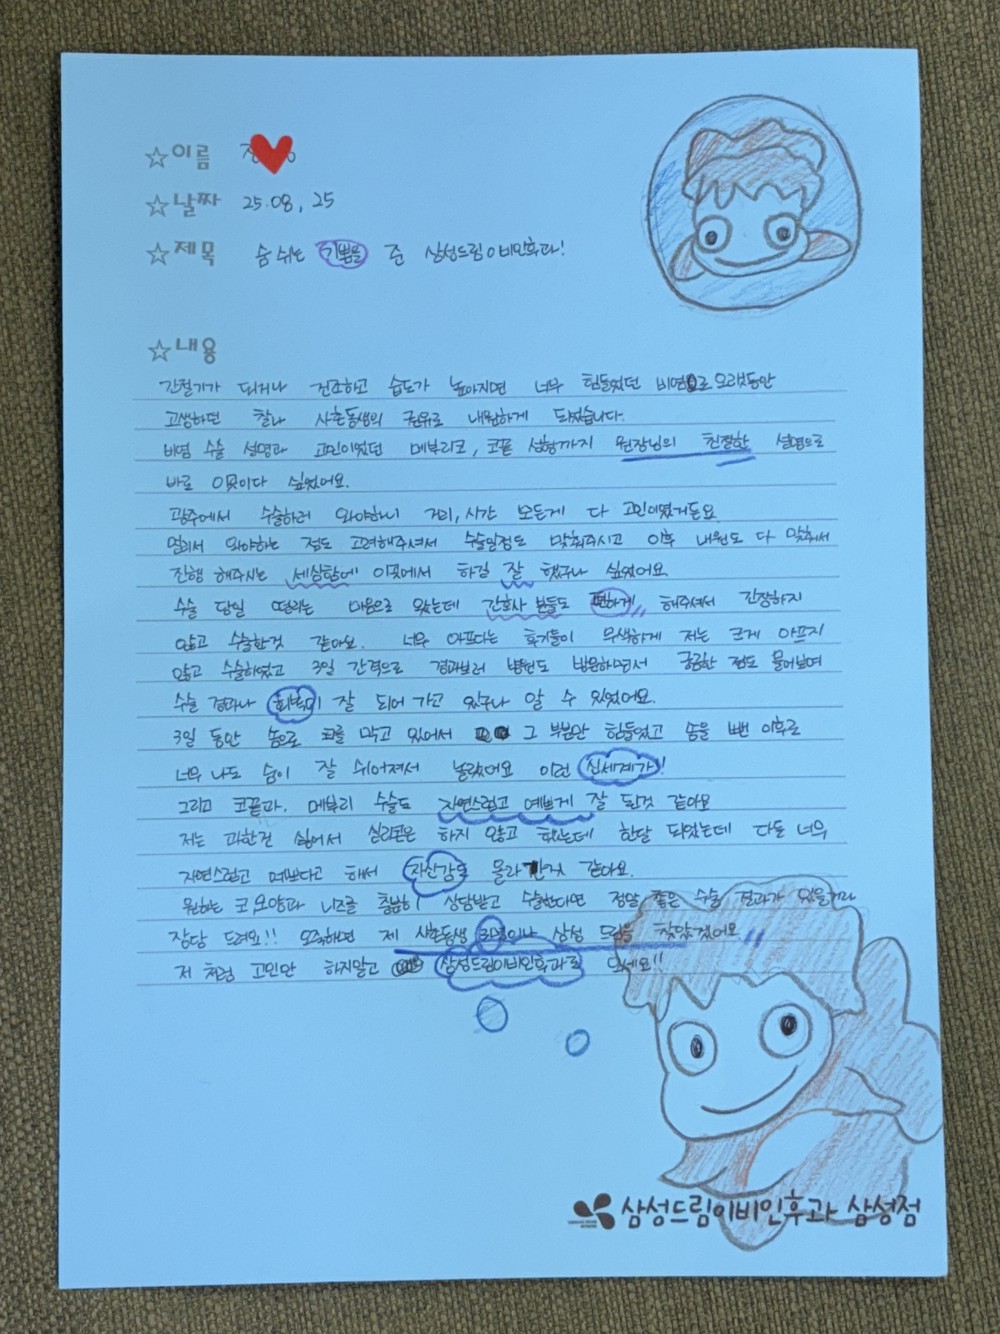 ☆이름
☆날짜 25.08, 25
☆제목 숨 쉬는 기쁨을 준 삼성드림이비인후과!
☆내용
간절기가 되거나 건조하고 습도가 높아지면 너무 힘들었던 비염으로 오랫동안
고생하던 찰나 사촌동생의 권유로 내원하게 되었습니다.
비염 수술 설명과 고민이었던 메부리코, 코끝 성형까지 원장님의 친절한 설명으로
바로 이곳이다 싶었어요.
광주에서 수술하러 와야하니 거리, 시간 모든게 다 고민이였거든요
멀리서 와야하는 점도 고려해주셔서 수술일정도 맞춰주시고 이후 내원도 다 맞춰서
진행 해주시는 세상함에 이곳에서 하길 잘 했구나 싶었어요.
수술 당일 떨리는 마음으로 왔는데 간호사 분들도 편하게 해주셔서 긴장하지
않고 수술한것 같아요. 너무 아프다는 후기들이 무색하게 저는 크게 아프지
않고 수술하였고 3일 간격으로 경과보러 병원도 방문하면서 궁금한 점도 물어보며
수술 결과나 회복이 잘 되어 가고 있구나 알 수 있었어요.
3일 동안 솜으로 코를 막고 있어서 그 부분만 힘들었고 솜을 뺀 이후로
너무 나도 숨이 잘 쉬어져서 놀랐어요 이건 신세계가!
그리고 코끝과. 메부리 수술도 자연스럽고 예쁘게 잘 된것 같아요
저는 과한건 싫어서 실리콘은 하지 않고 했는데 한달 되었는데 다들 너무
자연스럽고 예쁘다고 해서 자신감도 올라간거 같아요.
원하는 코 모양과 니즈를 충분히 상담받고 수술한다면 정말 좋은 수술 결과가 있을거라
장담 드려요!! 오죽하면 제 사촌동생 3명이나 삼성 드림을 찾았겠어요
저 처럼 고민만 하지말고 삼성드림이비인후과로 오세요!!
삼성드림이비인후과 삼성점